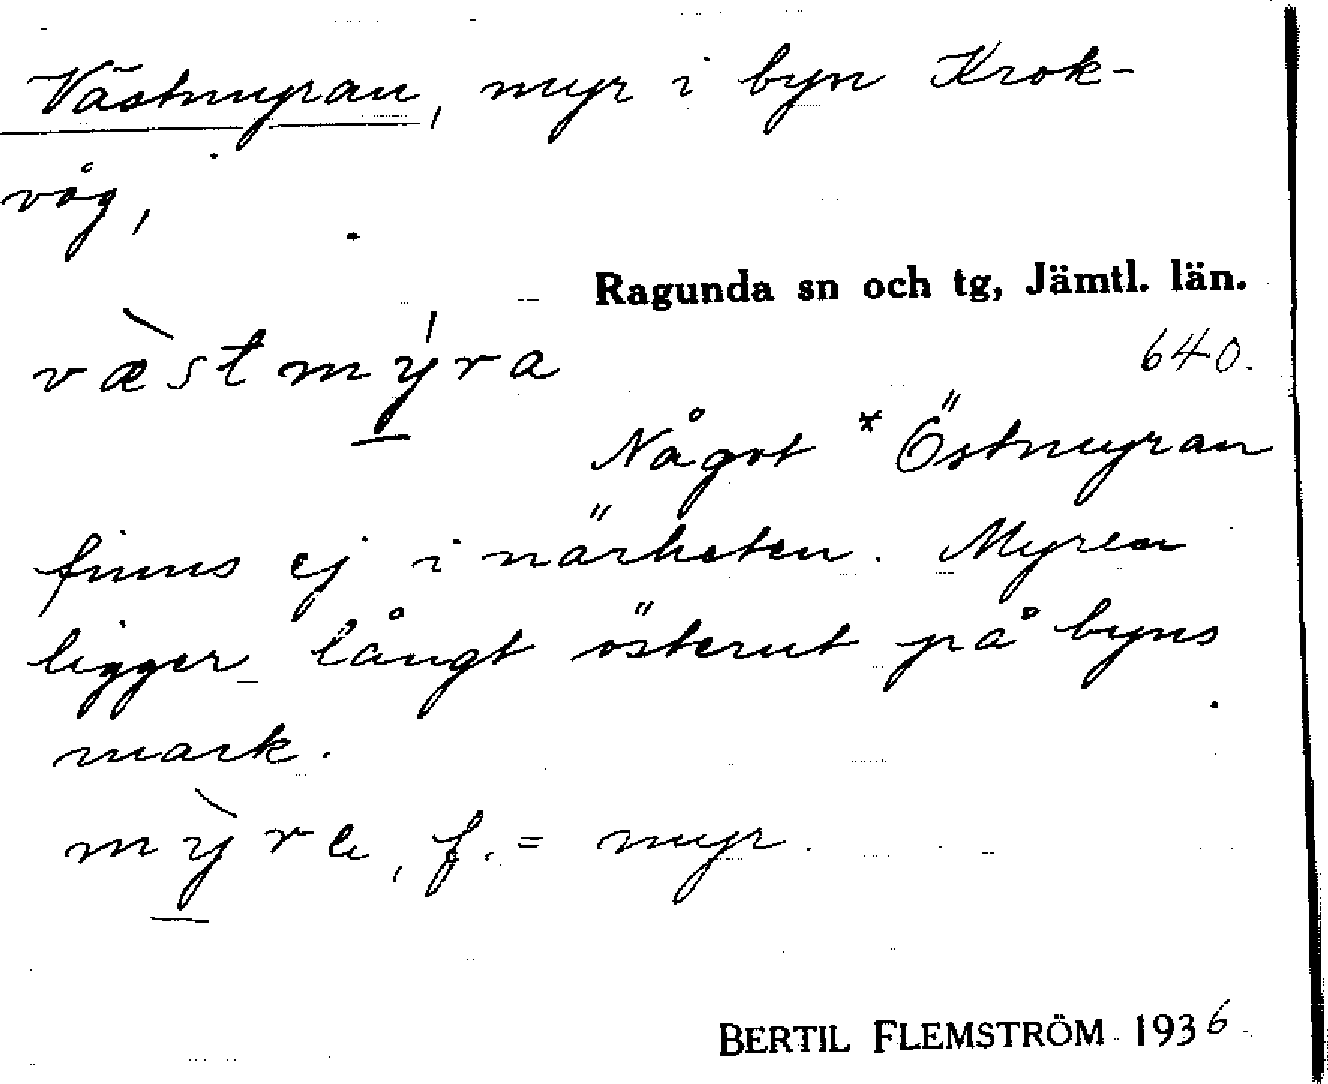 Västmyran, myr i byn Krok-
våg,
Ragunda sn och tg, Jämtl. län.
væ̀stmýra
640.
Något *Östmyran
finns ej i närheten. Myren
ligger långt österut på byns
mark.
mỳre, f. = myr.
BERTIL FLEMSTRÖM 1936